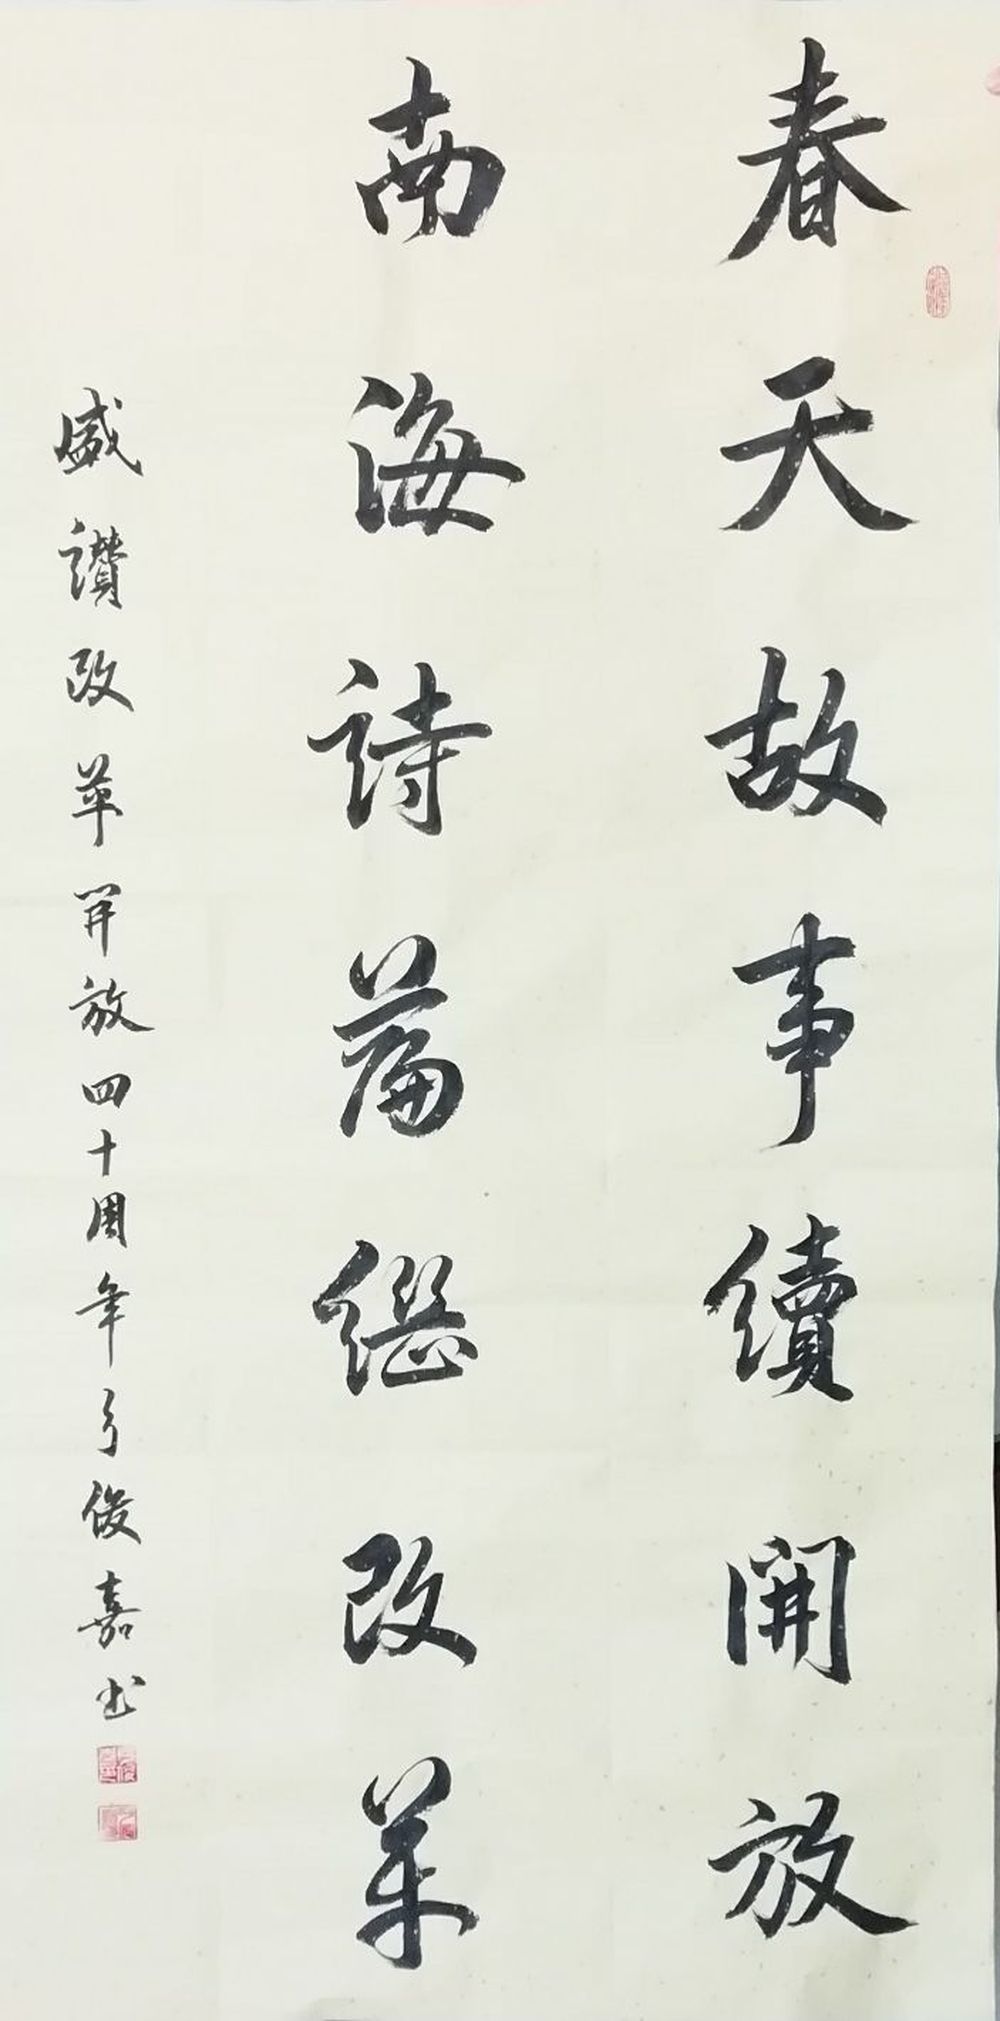 春天故事續開放
南海詩篇繼改革
盛讚改革開放四十周年弓俊嘉书